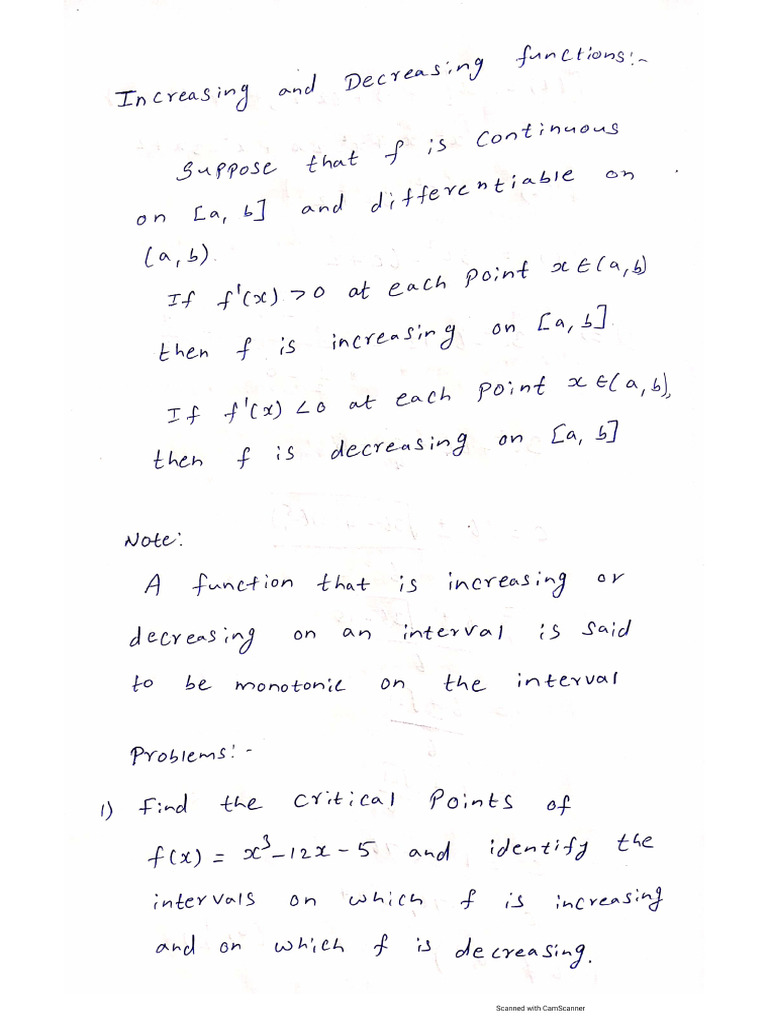 Increasing and Decreasing functions:-
Suppose that f is continuous
on [a, b] and differentiable on
(a, b).
If f'(x) > 0 at each point x∈(a, b)
then f is increasing on [a, b].
If f'(x) < 0 at each point x∈(a, b),
then f is decreasing on [a, b]
Note:
A function that is increasing or
decreasing on an interval is said
to be monotonic on the interval
Problems:-
1) Find the critical points of
f(x) = x³-12x-5 and identify the
intervals on which f is increasing
and on which f is decreasing.
Scanned with CamScanner